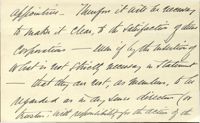 Therefore it will be necessary
to make it clear, to the satisfaction of these
Corporations — even if by the insertion of
what is not strictly necessary in statement
— that they are not, as members, to be
regarded as in any sense directors (or
with responsibility for the action of the